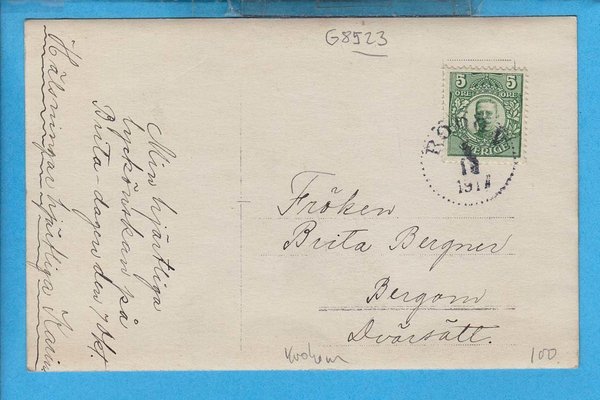 G8523
Min hjärtliga
lyckönskan på
Brita-dagen den 7 Okt.
Hälsningar hjärtliga Karin
5 5
ÖRE ÖRE
SVERIGE
1917
Fröken
Brita Bergner
Bergom
Dvärsätt.
100.